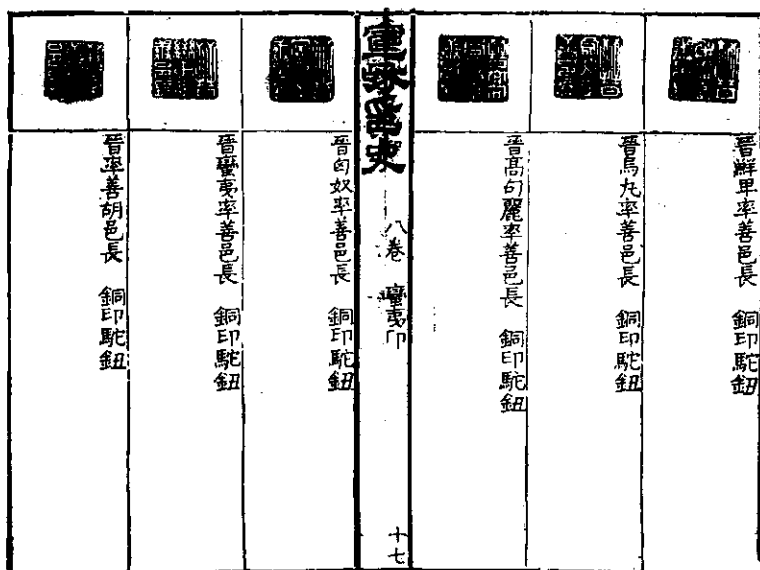 晉鮮卑率善邑長 銅印駝鈕
晉烏丸率善邑長 銅印駝鈕
晉高句麗率善邑長 銅印駝鈕
八卷 蠻夷印
十七
晉匈奴率善邑長 銅印駝鈕
晉蠻夷率善邑長 銅印駝鈕
晉率善胡邑長 銅印駝鈕